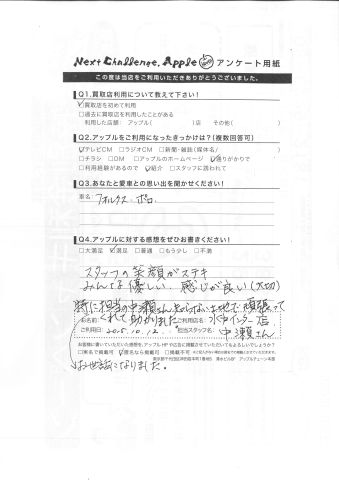 Next Challenge, Apple アンケート用紙
この度は当店をご利用いただきありがとうございました。
Q1.買取店利用について教えて下さい！
☑買取店を初めて利用
□過去に買取店を利用したことがある
利用した店舗： アップル（ ）店 その他（ ）
Q2.アップルをご利用になったきっかけは？（複数回答可）
☑テレビCM □ラジオCM □新聞・雑誌（媒体名／ ）
□チラシ □DM □アップルのホームページ ☑通りがかりで
□利用経験があるので ☑紹介 □スタッフに誘われて
Q3.あなたと愛車との思い出を聞かせください！
車名： フォルクス・ポロ
Q4.アップルに対する感想をぜひお書きください！
□大満足 ☑満足 □普通 □もう少し □不満
スタッフの笑顔がステキ
みんな優しい。感じが良い（大切）
特に担当の中瀬さん知らない土地で頑張って
くれて助かりました
お名前： ご利用店名： 水戸インター店
ご利用日： 2015.10.12 担当スタッフ名： 中瀬さん
お客様に書いていただいた感想を、アップルHPや広告に掲載させていただいてもよろしいでしょうか？
□実名で掲載可 ☑匿名なら掲載可 □掲載不可
お世話になりました。